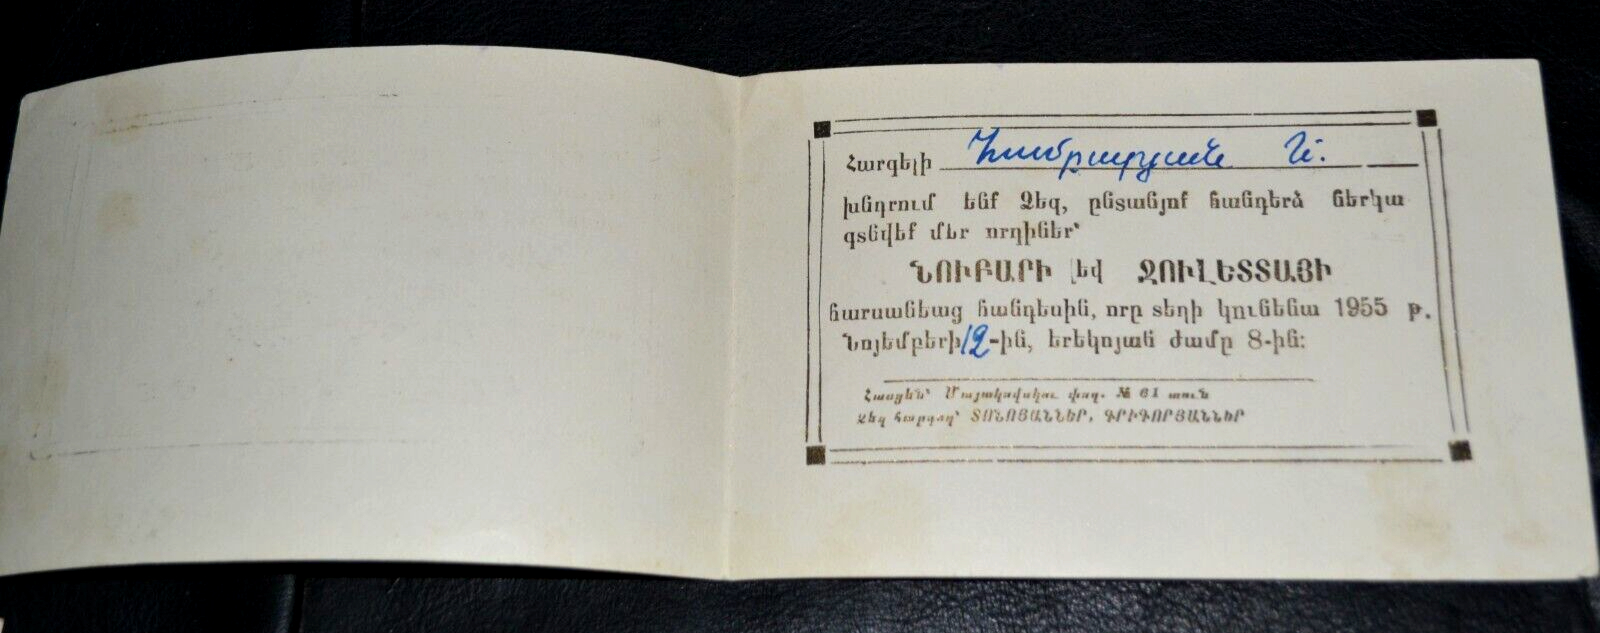 Հարգելի Համբարյան Ն.
խնդրում ենք Ձեզ, ընտանյոք հանդերձ ներկա
գտնվեք մեր որդիներ՝
ՆՈՒԲԱՐԻ եվ ՋՈՒԼԵՏՏԱՅԻ
հարսանեաց հանդեսին, որը տեղի կունենա 1955 թ.
Նոյեմբերի 12-ին, երեկոյան ժամը 8-ին։
Հասցեն՝ Մայակովսկու փող. № 61 տուն
Ձեզ հարգող՝ ՏՈՆՈՅԱՆՆԵՐ, ԳՐԻԳՈՐՅԱՆՆԵՐ